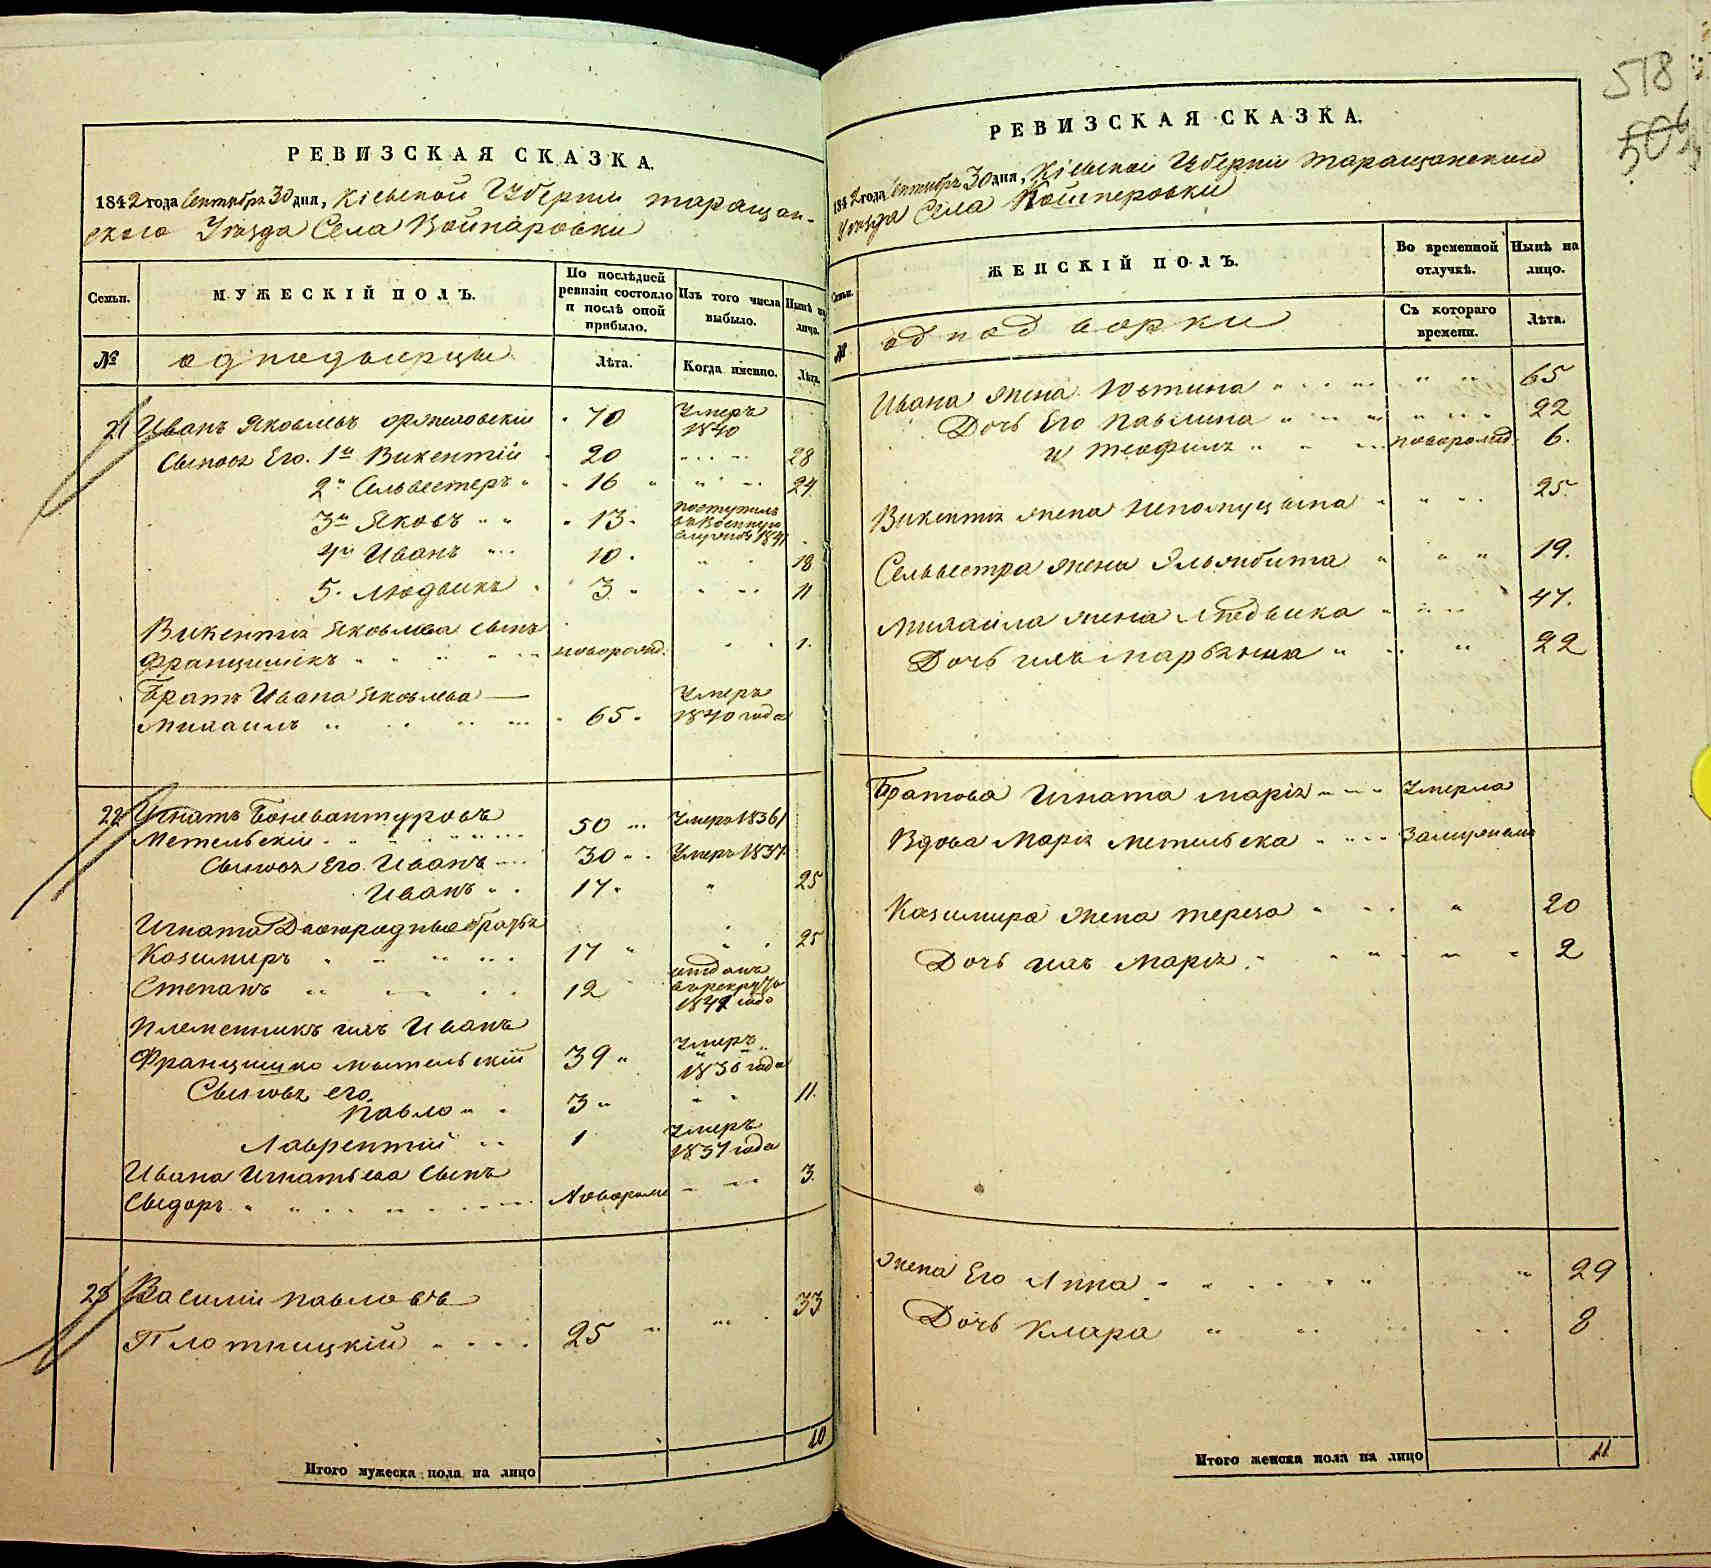 518
506
РЕВИЗСКАЯ СКАЗКА.
1842 года Сентября 30 дня, Кіевской Губерніи таращан-
ского Уезда Села Войпаровки
Семьи.
МУЖЕСКІЙ ПОЛЪ.
По послѣдней ревизіи состояло и послѣ оной прибыло.
Изъ того числа выбыло.
Нынѣ на лицо.
№
однодворцы
Лѣта.
Когда именно.
Лѣта.
21 Иванъ Яковлевъ оржеховскій 70 Умеръ 1840
Сыновя Его. 1й Викентій 20 28
2й Сельвестеръ 16 24
3й Яковъ 13 поступилъ въ военную службу 1841
4й Иванъ 10 18
5. Людвикъ 3 11
Викентія Яковлева сынъ
Францишекъ новорожд. 1.
Братъ Ивана Яковлева
Михаилъ 65 Умеръ 1840 года
22 Игнатъ Бонавантуровъ
Метельскій 50 Умеръ 1836
Сыновя Его Иванъ 30 Умеръ 1837
Иванъ 17 25
Игната Двоюродные братья
Казимиръ 17 25
Степанъ 12 отданъ въ рекруты 1841 года
Племенникъ ихъ Иванъ
Францишко метельскій 39 Умеръ 1836 года
Сыновя его
Павло 3 11.
Лаврентій 1 Умеръ 1837 года
Ивана Игнатьева Сынъ
Сыдоръ Новорожд 3.
23 Василій павловъ
Плотницкій 25 33
Итого мужеска пола на лицо 10
РЕВИЗСКАЯ СКАЗКА.
1842 года Сентября 30 дня, Кіевской Губерніи таращанского
Уезда Села Войтперовки
Семьи.
ЖЕНСКІЙ ПОЛЪ.
Во временной отлучкѣ.
Нынѣ на лицо.
№
однодворки
Съ котораго времени.
Лѣта.
Ивана жена Юстина 65
Дочь Его Павлина 22
и Теофиля новорожд. 6.
Викентія жена Непомуцына 25.
Сельвестра жена Эльжбита 19.
Михаила жена Людвика 47.
Дочь ихъ Марьянна 22
Братова Игната Марія Умерла
Вдова Марія метельска Замужемъ
Казимира жена тереза 20
Дочь ихъ Марія. 2
Жена Его Анна 29
Дочь Клара 8
Итого женска пола на лицо 11